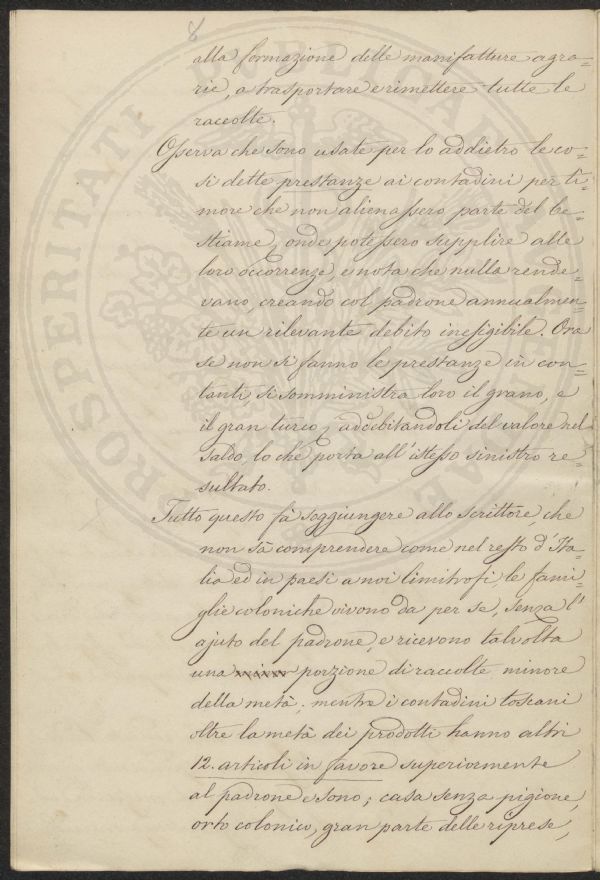 8
alla formazione delle manifatture agra=
rie, a trasportare e rimettere tutte le
raccolte.
Osserva che sono usate per lo addietro le co=
si dette prestanze ai contadini per ti=
more che non alienassero parte del be=
stiame, onde potessero supplire alle
loro occorrenze, e nota che nulla rende=
vano, creando col padrone annualmen=
te un rilevante debito inesigibile. Ora
se non si fanno le prestanze in con=
tanti, si somministra loro il grano, e
il gran turco, addebitandoli del valore nel
saldo, lo che porta all'istesso sinistro re=
sultato.
Tutto questo fà soggiungere allo scrittore, che
non sà comprendere come nel resto d'Ita=
lia ed in paesi a noi limitrofi, le fami=
glie coloniche vivono da per se, senza l'
ajuto del padrone, e ricevono talvolta
una porzione di raccolte minore
della metà; mentre i contadini toscani
oltre la metà dei prodotti hanno altri
12. articoli in favore superiormente
al padrone e sono; casa senza pigione,
orto colonico, gran parte delle riprese,
PROSPERITATI PUBLICAE